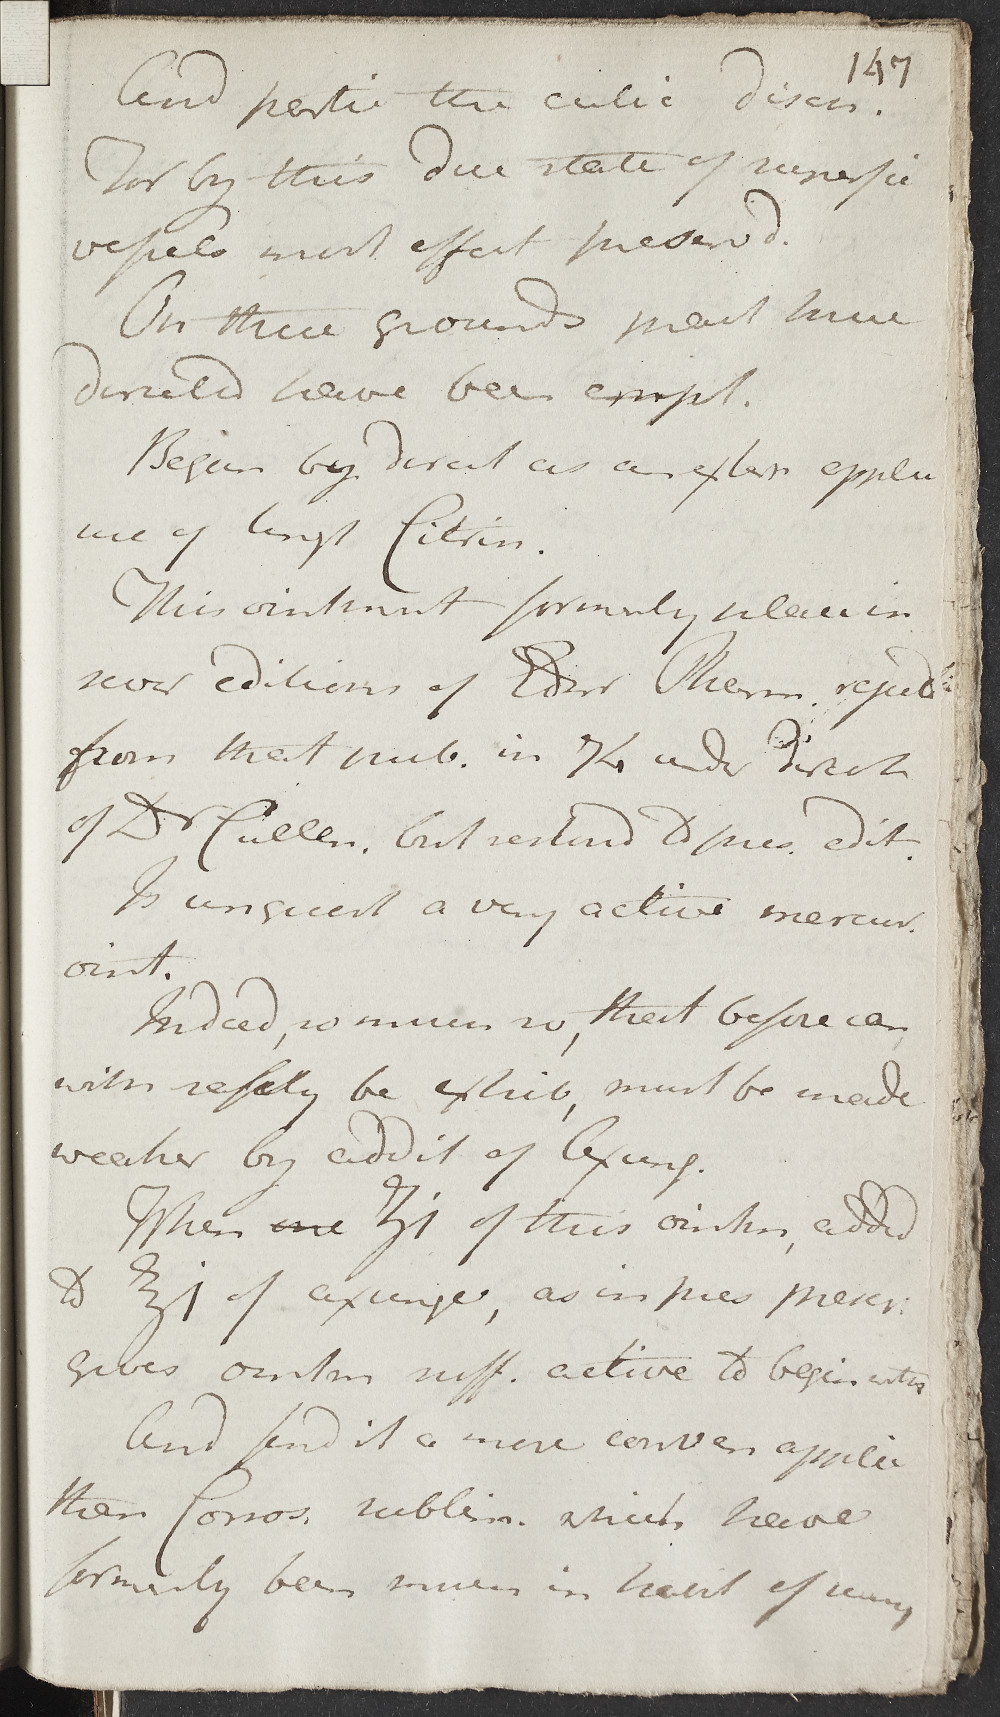 147
And partic the cutic diseas.
For by this due state of superfic
vessels most effect preserv'd.
On these grounds pract here
directed have been empl.
Began by direct as an extern applic
use of Ungt Citrin.
This ointment formerly place in
sever editions of Edinr Pharm. reject
from that pub. in 74 under direct
of Dr Cullen. but restord to pres. edit.
Is unquest a very active mercur.
oint.
Indeed, so much so, that before can
with safety be exhib, must be made
weaker by addit of Axung.
When one ʒj of this ointm, added
to ℥j of axunge, as in pres prescr.
gives ointm suff. active to begin with
And find it a more conven applic
than Corros. sublim. which have
formerly been much in habit of using